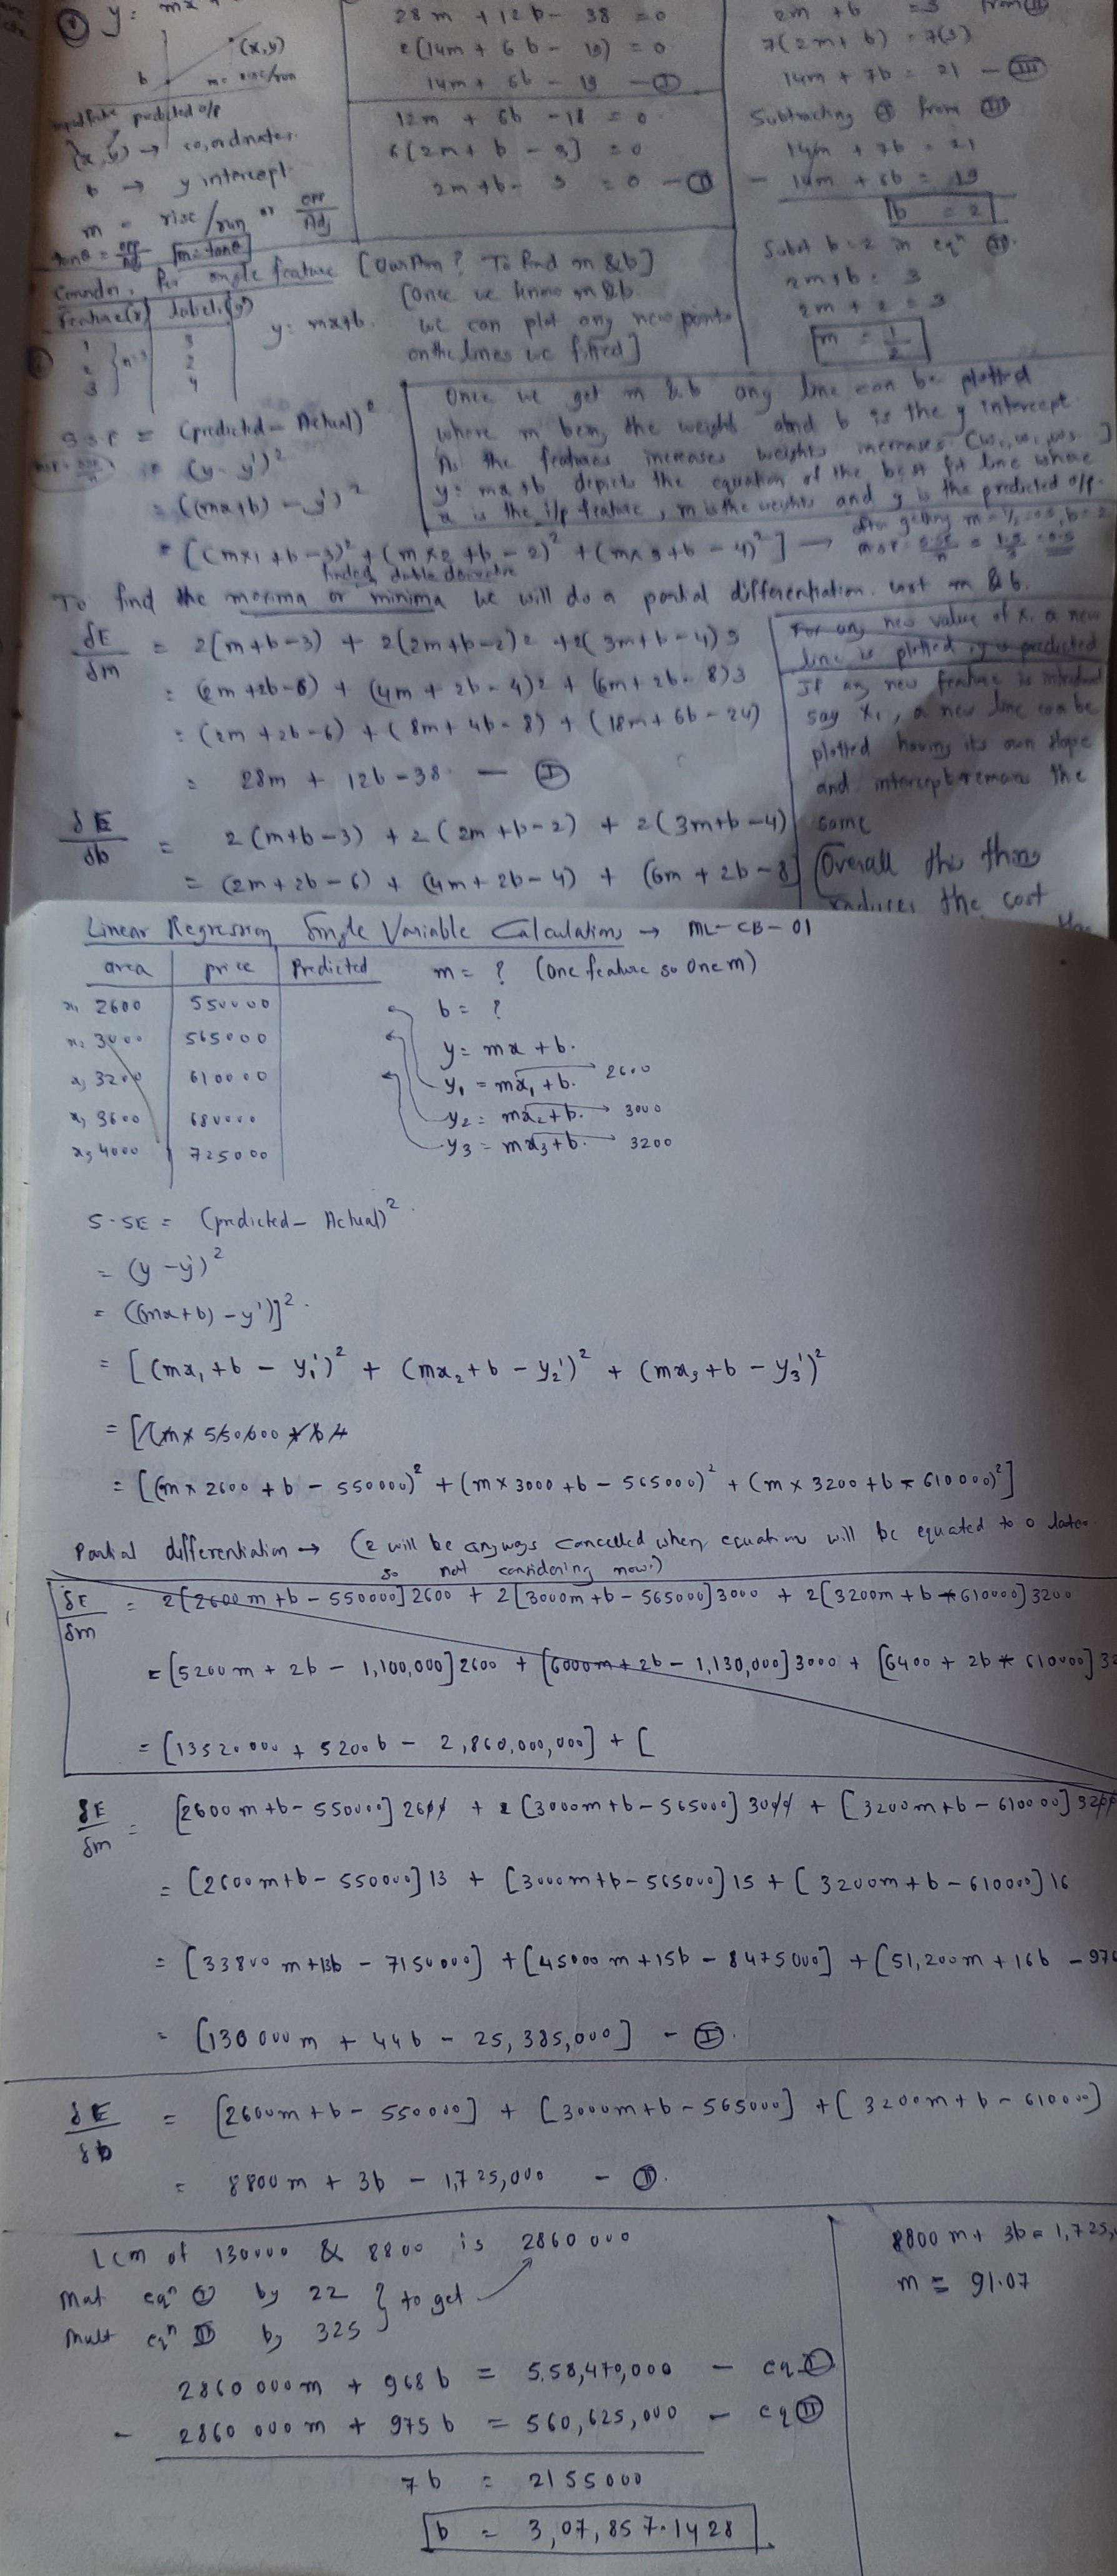 ① y = mx +
(x,y)
b
m = rise/run
predicted o/p
(x,y) → co,ordinates
b → y intercept
m = rise/run or opp/Adj
tanθ = opp/Adj m = tanθ
Consider, for single feature [Our Aim? To find m & b]
Feature(x) labels(y)
1 3
2 } n=3 2
3 4
y = mx+b.
[Once we know m & b
we can plot any new points
on the lines we fitted]
28m + 12b - 38 = 0
2(14m + 6b - 19) = 0
14m + 6b - 19 - Ⓘ
12m + 6b - 18 = 0
6[2m + b - 3] = 0
2m + b - 3 = 0 - Ⅱ
2m + b = 3 from Ⅱ
7(2m + b) = 7(3)
14m + 7b = 21 - Ⅲ
Subtracting Ⓘ from Ⅲ
14m + 7b = 21
- 14m + 6b = 19
b = 2
Subst b = 2 in eqⁿ Ⅱ.
2m + b = 3
2m + 2 = 3
m = 1/2
Once we get m & b any line can be plotted
where m being the weights and b is the y intercept
As the features increases weights increases (w₁, w₂, w₃ ]
y = mx+b depicts the equation of the best fit line where
x is the i/p feature, m is the weights and y is the predicted o/p.
S.S.E = (predicted - Actual)²
= (y - y')²
= ((mx+b) - y')²
= [(mx1 + b - 3)² + (mx2 + b - 2)² + (mx3 + b - 4)²] →
after getting m = 1/2 = 0.5, b = 2
MSE = SSE/n = 1.5/3 = 0.5
double derivative
To find the maxima or minima we will do a partial differentiation. wrt m & b.
δE/δm = 2(m+b-3) + 2(2m+b-2)2 + 2(3m+b-4)3
= (2m+2b-6) + (4m+2b-4)2 + (6m+2b-8)3
= (2m+2b-6) + (8m+4b-8) + (18m+6b-24)
= 28m + 12b - 38 - Ⓘ
δE/δb = 2(m+b-3) + 2(2m+b-2) + 2(3m+b-4)
= (2m+2b-6) + (4m+2b-4) + (6m+2b-8)
For any new value of x, a new
line is plotted, y is predicted
If any new feature is introduced
say x₁, a new line can be
plotted having its own slope
and intercept remains the
same
Overall this thing
reduces the cost
Linear Regression Single Variable Calculations → ML-CB-01
area price Predicted
x₁ 2600 550000
x₂ 3000 565000
x₃ 3200 610000
x₄ 3600 680000
x₅ 4000 725000
m = ? (one feature so one m)
b = ?
y = mx + b.
y₁ = mx₁ + b. → 2600
y₂ = mx₂ + b. → 3000
y₃ = mx₃ + b. → 3200
S.SE = (predicted - Actual)²
= (y - y')²
= ((mx+b) - y')]²
= [(mx₁ + b - y₁')² + (mx₂ + b - y₂')² + (mx₃ + b - y₃')²
= [(m x 550000 + b
= [(m x 2600 + b - 550000)² + (m x 3000 + b - 565000)² + (m x 3200 + b - 610000)²]
Partial differentiation → (2 will be anyways cancelled when equation will be equated to 0 later
so not considering now.)
δE/δm = 2[2600m + b - 550000]2600 + 2[3000m + b - 565000]3000 + 2[3200m + b - 610000]3200
= [5200m + 2b - 1,100,000]2600 + [6000m + 2b - 1,130,000]3000 + [6400 + 2b - 610000]32
= [13520000 + 5200b - 2,860,000,000] + [
δE/δm = [2600m + b - 550000]2600 + 2[3000m + b - 565000]3000 + [3200m + b - 610000]3200
= [2600m + b - 550000]13 + [3000m + b - 565000]15 + [3200m + b - 610000]16
= [33800m + 13b - 7150000] + [45000m + 15b - 8475000] + [51,200m + 16b - 976
= [130000m + 44b - 25,385,000] - Ⓘ.
δE/δb = [2600m + b - 550000] + [3000m + b - 565000] + [3200m + b - 610000]
= 8800m + 3b - 1,725,000 - Ⅱ.
LCM of 130000 & 8800 is 2860000
Mult eqⁿ Ⓘ by 22 } to get
Mult eqⁿ Ⅱ by 325
2860000m + 968b = 5,58,470,000 - eq Ⓘ
- 2860000m + 975b = 560,625,000 - eq Ⅱ
7b = 2155000
b = 3,07,857.1428
8800m + 3b = 1,725,
m = 91.07